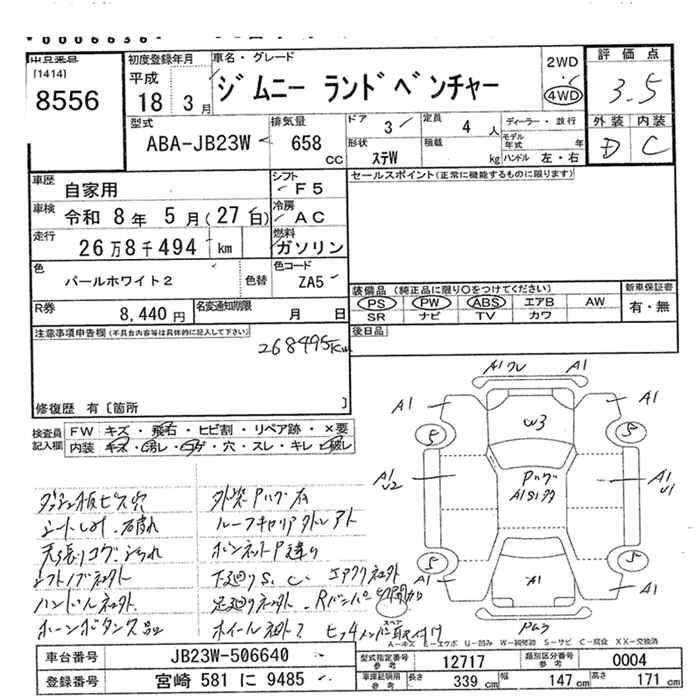 [1414]
8556
初度登録年月
平成
18 3月
車名・グレード
ジムニー ランドベンチャー
2WD
4WD
評価点
3.5
外装 内装
D C
型式
ABA-JB23W
排気量
658 CC
ドア 3
形状 ステW
定員 4 人
積載 kg
ディーラー・並行
モデル年式 年
ハンドル 左・右
車歴 自家用
シフト F5
車検 令和 8年 5月(27日)
冷房 AC
走行 26万8千494 km
燃料 ガソリン
色 パールホワイト2
色替
色コード ZA5
R券 8,440円
名変通知期限 月 日
セールスポイント(正常に機能するものに限ります)
装備品(純正品に限り○をつけてください)
新車保証書
PS PW ABS エアB AW
SR ナビ TV カワ
有・無
後日品
注意事項申告欄(不具合内容等は具体的に記入して下さい)
268495Km
修復歴 有〔箇所 〕
検査員記入欄
FW キズ・飛石・ヒビ割・リペア跡・×要
内装 キズ・汚レ・コゲ・穴・スレ・キレ・破レ
ダッシュ板ビス穴
シートしみ.破れ
天張りコゲ.よごれ
シフトノブ社外
ハンドル社外.
外装Pハゲ有
ルーフキャリア
ボンネットP
下廻りS.C.エアクリ社外
足廻り社外.Rバンパー
ホイール社外
取付け
A1 A1
A1 A1
W3
5 5
A1 U2
A1 U1
Pハゲ
5 5
A1 A1
A1
A…キズ E…エクボ U…凹み W…補修跡 S…サビ C…腐食 XX…交換済
車台番号 JB23W-506640
登録番号 宮崎 581 に 9485
型式指定番号 参考 12717
類別区分番号 参考 0004
車庫証明用 参考 長さ 339 cm 幅 147 cm 高さ 171 cm